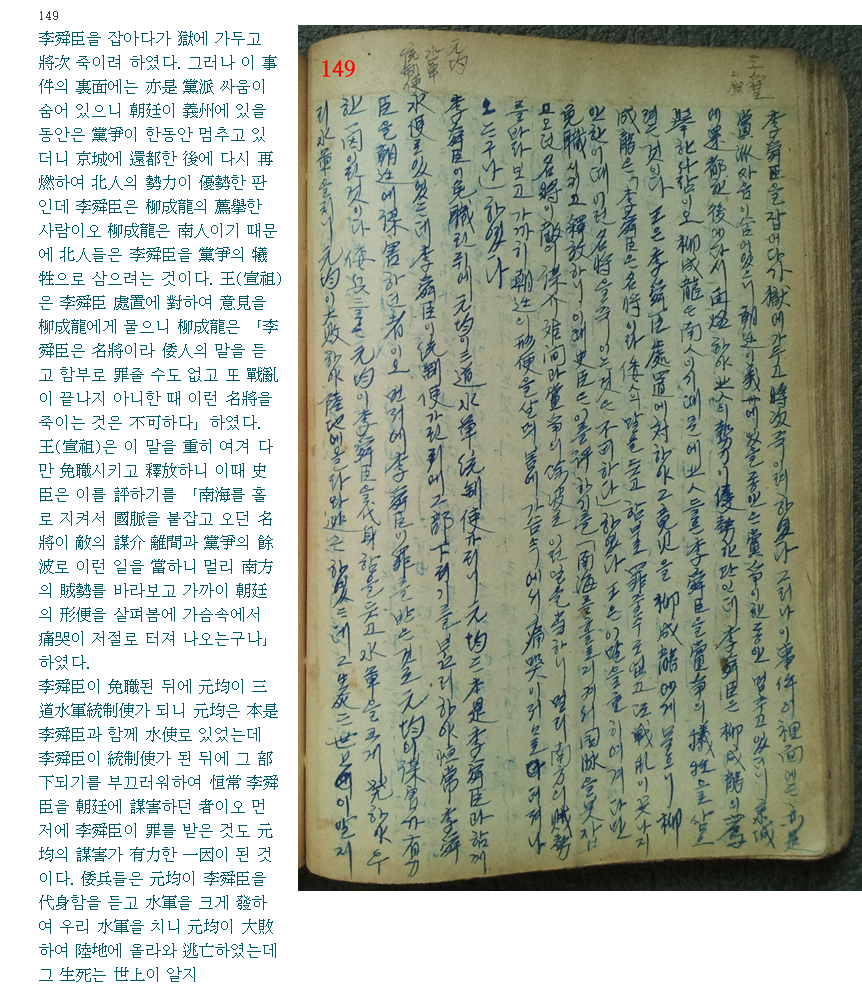 149
李舜臣을 잡아다가 獄에 가두고
將次 죽이려 하였다. 그러나 이 事
件의 裏面에는 亦是 黨派 싸움이
숨어 있으니 朝廷이 義州에 있을
동안은 黨爭이 한동안 멈추고 있
더니 京城에 還都한 後에 다시 再
燃하여 北人의 勢力이 優勢한 판
인데 李舜臣은 柳成龍의 薦擧한
사람이오 柳成龍은 南人이기 때문
에 北人들은 李舜臣을 黨爭의 犧
牲으로 삼으려는 것이다. 王(宣祖)
은 李舜臣 處置에 對하여 意見을
柳成龍에게 물으니 柳成龍은 「李
舜臣은 名將이라 倭人의 말을 듣
고 함부로 罪줄 수도 없고 또 戰亂
이 끝나지 아니한 때 이런 名將을
죽이는 것은 不可하다」하였다.
王(宣祖)은 이 말을 重히 여겨 다
만 免職시키고 釋放하니 이때 史
臣은 이를 評하기를 「南海를 홀
로 지켜서 國脈을 붙잡고 오던 名
將이 敵의 謀介 離間과 黨爭의 餘
波로 이런 일을 當하니 멀리 南方
의 賊勢를 바라보고 가까이 朝廷
의 形便을 살펴봄에 가슴속에서
痛哭이 저절로 터져 나오는구나」
하였다.
李舜臣이 免職된 뒤에 元均이 三
道水軍統制使가 되니 元均은 本是
李舜臣과 함께 水使로 있었는데
李舜臣이 統制使가 된 뒤에 그 部
下되기를 부끄러워하여 恒常 李舜
臣을 朝廷에 謀害하던 者이오 먼
저에 李舜臣이 罪를 받은 것도 元
均의 謀害가 有力한 一因이 된 것
이다. 倭兵들은 元均이 李舜臣을
代身함을 듣고 水軍을 크게 發하
여 우리 水軍을 치니 元均이 大敗
하여 陸地에 올라와 逃亡하였는데
그 生死는 世上이 알지
149
元均
水軍
統制使
李舜臣을 잡어다가 獄에 가두고 將次 죽이려 하였다 그러나 이 事件의 裡面에는 亦是
黨派 싸움이 숨어 있으니 朝廷이 義州에 있을 동안은 黨爭이 한동안 멈추고 있더니 京城
에 還都한 後에 다시 再燃하야 北人의 勢力이 優勢한 판인데 李舜臣은 柳成龍의 薦
擧한 사람이오 柳成龍은 南人이기 때문에 北人들은 李舜臣을 黨爭의 犧牲을 삼으
것이다 王은 李舜臣 處置에 対하야 그 意見을 柳成龍에게 물으니 柳
成龍은「李舜臣은 名將이라 倭人의 말을 듣고 함부로 罪줄 수도 없고 또 戰乱이 끝나지
안한 이때 이런 名將을 죽이는 것은 不可하다」하였다 王은 이 말을 重히 여겨 다만
免職시키고 釋放하니 이때 史臣은 이를 評하기를「南海를 홀로 지켜서 國脉을 붓잡
고 오던 名將이 敵의 謀介 離間과 黨爭의 餘波로 이런 일을 當하니 멀리 南方의 賊勢
를 바라보고 가까이 朝廷의 形便을 살펴 봄에 가슴속에서 痛哭이 저절로 터져 나
오는구나」하였다
李舜臣이 免職된 뒤에 元均이 三道水軍統制使가 되니 元均은 本是 李舜臣과 함께
水使로 있었는데 李舜臣이 統制使가 된 뒤에 그 部下되기를 부끄러하야 恒常 李舜
臣을 朝廷에 謀害하던 者이오 먼저에 李舜臣이 罪를 받은 것도 元均의 謀害가 有力
한 一因이 된 것이다 倭兵들은 元均이 李舜臣을 代身함을 듣고 水軍을 크게 發하야 우
리 水軍을 치니 元均이 大敗하야 陸地에 올라와 逃亡하였는데 그 生死는 世上이 알지